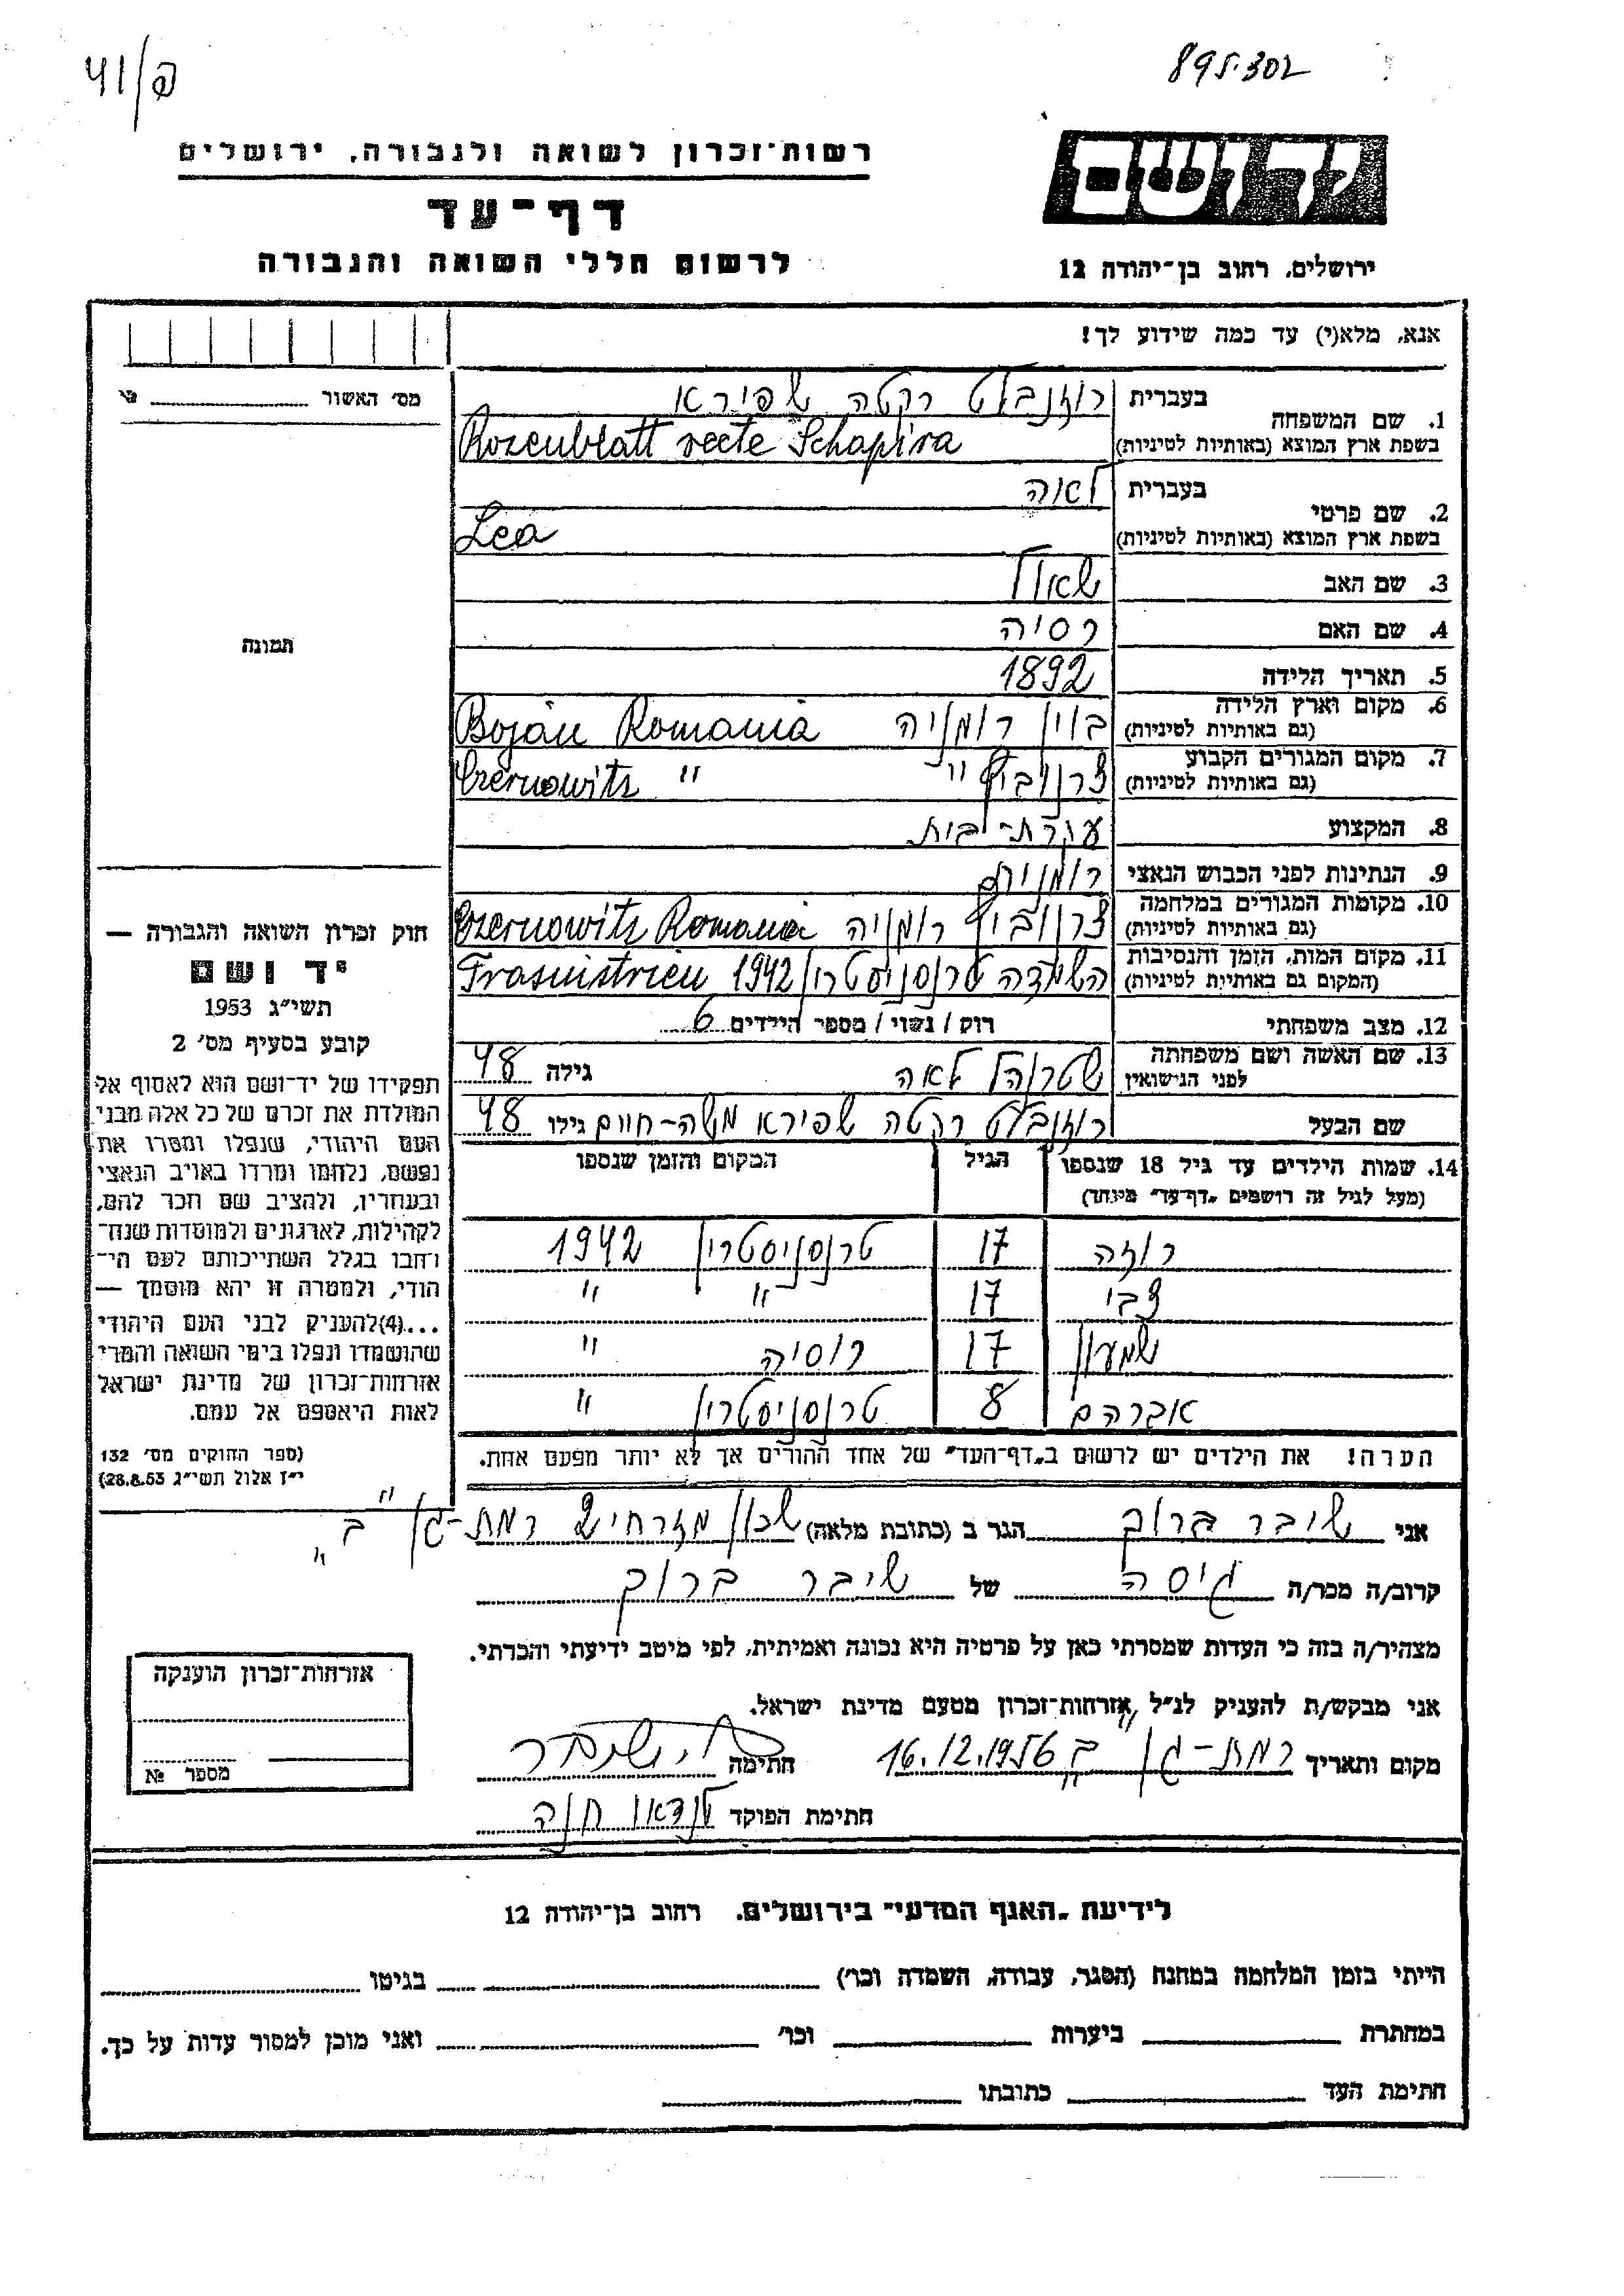 41/פ
895.302
רשות־זכרון לשואה ולגבורה, ירושלים
דף־עד
לרשום חללי השואה והגבורה
ידושם
ירושלים, רחוב בן־יהודה 12
אנא, מלא(י) עד כמה שידוע לך!
מס' האשור
1. שם המשפחה בעברית רוזנבלט רקטה שפירא
בשפת ארץ המוצא (באותיות לטיניות) Rozenblatt recte Schapira
2. שם פרטי בעברית לאה
בשפת ארץ המוצא (באותיות לטיניות) Lea
3. שם האב שאול
4. שם האם רסיה
תמונה
5. תאריך הלידה 1892
6. מקום וארץ הלידה (גם באותיות לטיניות) בוין רומניה Bojan Romania
7. מקום המגורים הקבוע (גם באותיות לטיניות) צרנוביץ " Czernowitz "
8. המקצוע עקרת-בית
9. הנתינות לפני הכבוש הנאצי רומנית
10. מקומות המגורים במלחמה (גם באותיות לטיניות) צרנוביץ רומניה Czernowitz Romania
11. מקום המות, הזמן והנסיבות (המקום גם באותיות לטיניות) השמדה טרנסניסטרין 1942 Trasnistrien
12. מצב משפחתי רוק / נשוי / מספר הילדים 6
13. שם האשה ושם משפחתה לפני הנישואין שטרוהל לאה גילה 48
שם הבעל רוזנבלט רקטה שפירא משה-חיים גילו 48
14. שמות הילדים עד גיל 18 שנספו הגיל המקום והזמן שנספו
(מעל לגיל זה רושמים „דף־עד" מיוחד)
רוזה 17 טרנסניסטרין 1942
צבי 17 " "
שמעון 17 רוסיה "
אברהם 8 טרנסניסטרין "
הערה! את הילדים יש לרשום ב„דף־העד" של אחד ההורים אך לא יותר מפעם אחת.
חוק זכרון השואה והגבורה —
יד ושם
תשי"ג 1953
קובע בסעיף מס' 2
תפקידו של יד־ושם הוא לאסוף אל
המולדת את זכרם של כל אלה מבני
העם היהודי, שנפלו ומסרו את
נפשם, נלחמו ומרדו באויב הנאצי
ובעוזריו, ולהציב שם וזכר להם,
לקהילות, לארגונים ולמוסדות שנח־
רבו בגלל השתייכותם לעם הי־
הודי, ולמטרה זו יהא מוסמך —
...(4)להעניק לבני העם היהודי
שהושמדו ונפלו בימי השואה והמרי
אזרחות־זכרון של מדינת ישראל
לאות היאספם אל עמם.
(ספר החוקים מס' 132
י"ז אלול תשי"ג 28.8.53)
אני שיבר ברוך הגר ב (כתובת מלאה) שכון מזרחי 2 רמת-גן "ב"
קרוב/ה מכר/ה גיסה של שיבר ברוך
מצהיר/ה בזה כי העדות שמסרתי כאן על פרטיה היא נכונה ואמיתית, לפי מיטב ידיעתי והכרתי.
אני מבקש/ת להעניק לנ"ל אזרחות־זכרון מטעם מדינת ישראל.
מקום ותאריך רמת-גן "ב" 16.12.1956 חתימה
חתימת הפוקד לנדאו חנה
אזרחות־זכרון הוענקה
מספר №
לידיעת „האגף המדעי" בירושלים. רחוב בן־יהודה 12
הייתי בזמן המלחמה במחנה (הסגר, עבודה, השמדה וכו') בגיטו
במחתרת ביערות וכו' ואני מוכן למסור עדות על כך.
חתימת העד כתובתו